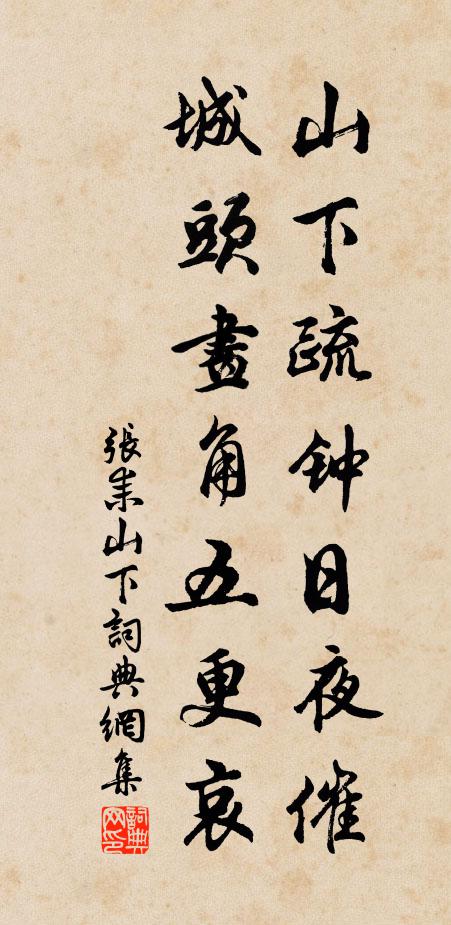 山下疏钟日夜催
城頭畫角五更哀
張耒山下詞典網集
詞典網印